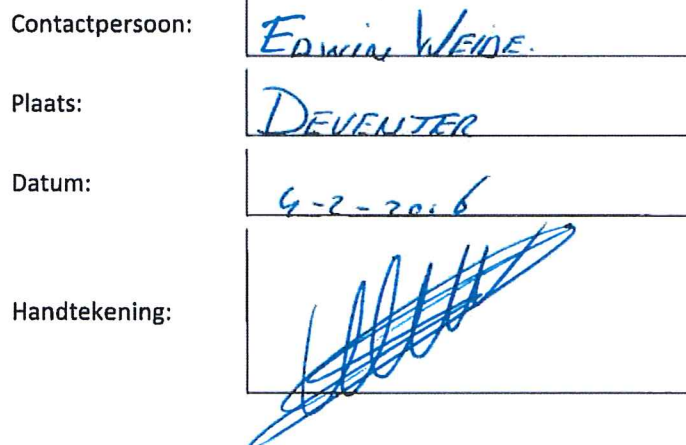 Contactpersoon: EDWIN WEIDE.
Plaats: DEVENTER
Datum: 4-2-2016
Handtekening: